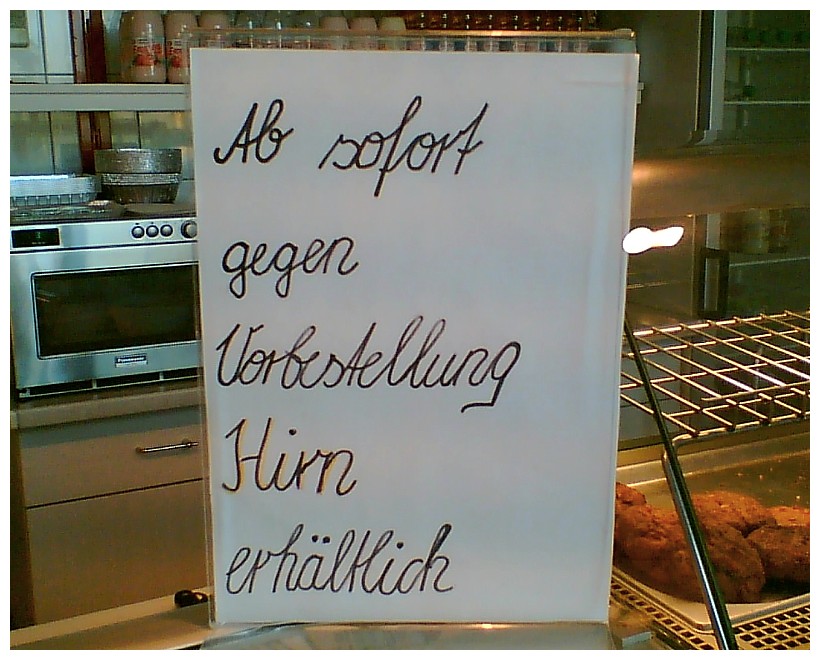 Ab sofort
gegen
Vorbestellung
Hirn
erhältlich
Panasonic